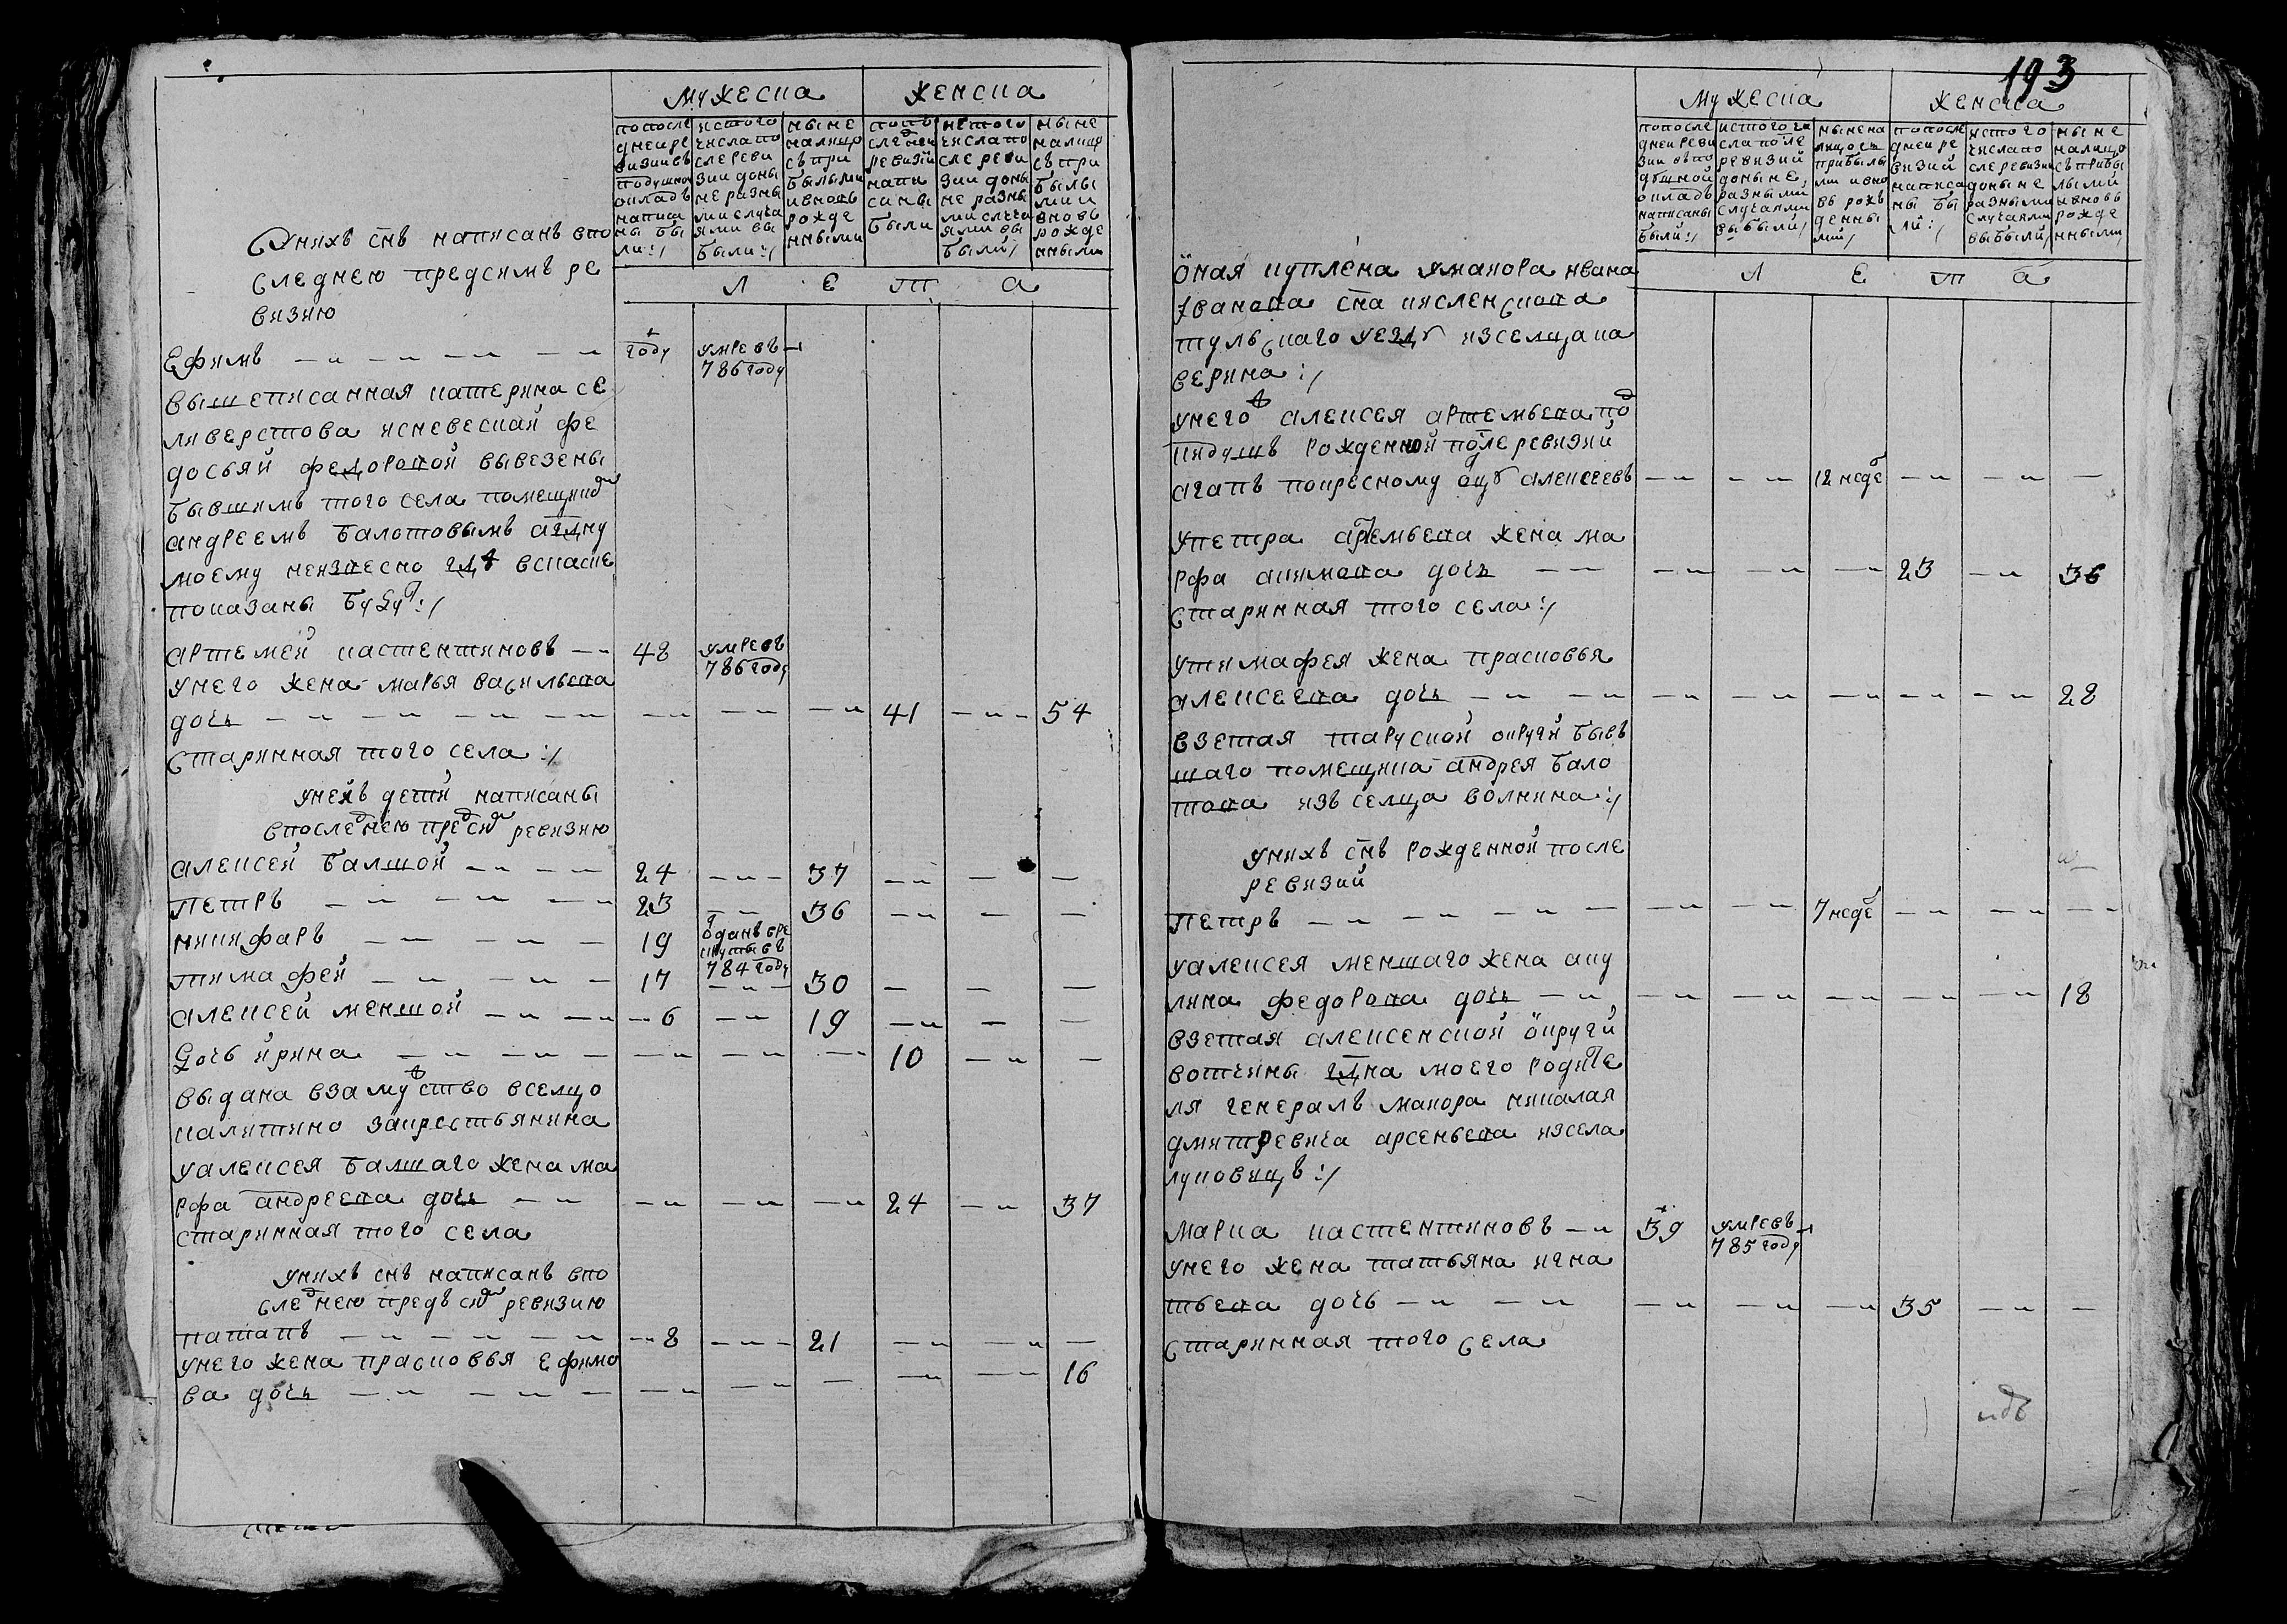 Мужеска Женска
попосле
дней ре
визиивъ
подушно
окладъ
написа
ны бы
ли:/
истого
числапо
слереви
зии доны
не разны
ми случа
ями вы
были:/
ныне
налицо
съ при
былыми
ивновь
рожде
нными
попо
следней
ревизіи
напи
саны
были
истого
числапо
сле реви
зии доны
не разны
ми случа
ями вы
были/
ныне
налицо
съ при
былы
ми и
вновь
рожде
нными
Л е т а
Уняхъ снъ написанъ впо
следнею предсимъ ре
визию
Ефимъ — году умре въ
786 году
вышеписанная катерина се
ливерстова исневеской фе
досьей федоровой вывезены
бывшимъ того села помещико
андреемъ балотовымъ
моему неизвесно где вскаске
показаны будут:/
артемей кастентиновъ — 48 умре въ
786 году
унего жена марья васильева
дочь — 41 — 54
старинная того села:/
унехъ дети написаны
впоследнею предсию ревизию
алексей балшой — 24 — 37
петръ — 23 — 36
никифаръ — 19 оданъ вре
круты въ
784 году
тимафей — 17 — 30
алексей меншой — 6 — 19
дочь ирина — 10 —
выдана взамуство вселцо
калитино закрестьянина
уалексея балшаго жена ма
рфа андреева дочь — 24 — 37
старинная того села
унихъ снъ написанъ впо
следнею предъ сию ревизию
патапъ — 8 — 21
унего жена прасковья ефимо
ва дочь — 16
193
Мужеска Женска
попосле
дней реви
зии въпо
душной
окладъ
написаны
были:/
истого чи
сла после
ревизии
доны не
разными
случаями
выбыли/
нынена
лицо съ
прибылы
ми ивно
въ рожъ
денны
ми/
попосле
дней ре
визии
написа
ны бы
ли:/
истого
числапо
слеревизии
доны не
разными
случаями
выбыли/
ныне
налицо
съ прибы
лыми
ивновь
рожде
нными
Л е т а
оная куплена умаиора ивана
Иванова сна кисленскова
тульскаго уезду изселца ка
верина:/
унего алексея артемьева по
кидышъ рожденной после ревизии
агапъ покресному отцу алексеевъ — 12 неде —
упетра артемьева жена ма
рфа акимова дочь — 23 — 36
старинная того села:/
утимафея жена прасковья
алексеева дочь — 28
взетая таруской округи бывъ
шаго помещика андрея бало
това изъ селца волнина:/
унихъ снъ рожденной после
ревизии
петръ — 7 неде —
уалексея меншаго жена аку
лина федорова дочь — 18
взетая алексенской округи
вотчины гдна моего родите
ля генералъ маиора николая
дмитревича арсеньева изсела
луковицъ:/
марка кастентиновъ — 39 умре въ
785 году
унего жена татьяна игна
тьева дочь — 35 —
старинная того села